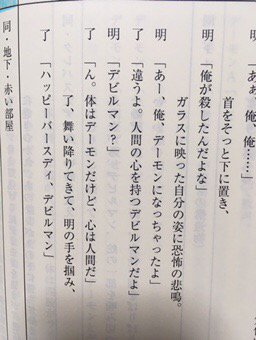 明「あぁ、俺、俺……」
首をそっと下に置き、
明「俺が殺したんだよな」
ガラスに映った自分の姿に恐怖の悲鳴。
明「あー、俺、デーモンになっちゃったよ」
了「違うよ。人間の心を持つデビルマンだよ」
明「デビルマン？」
了「ん。体はデーモンだけど、心は人間だ」
了、舞い降りてきて、明の手を掴み、
了「ハッピーバースディ、デビルマン」
同・地下・赤い部屋